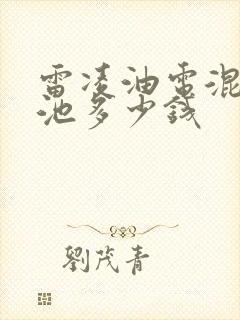 雷凌油电混
池多少钱
劉茂青